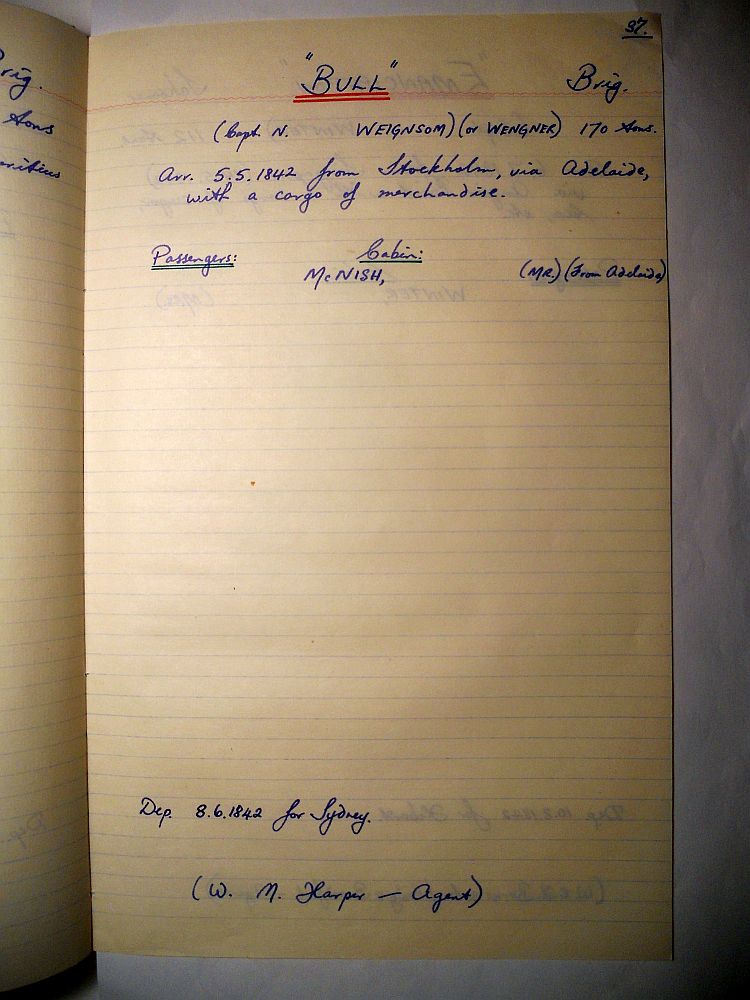 37.
"BULL" Brig.
(Capt. N. WEIGNSOM) (or WENGNER) 170 tons.
Arr. 5.5.1842 from Stockholm, via Adelaide,
with a cargo of merchandise.
Passengers: Cabin:
McNISH, (MR.) (From Adelaide)
Dep. 8.6.1842 for Sydney.
(W. M. Harper — Agent)
rig.
tons